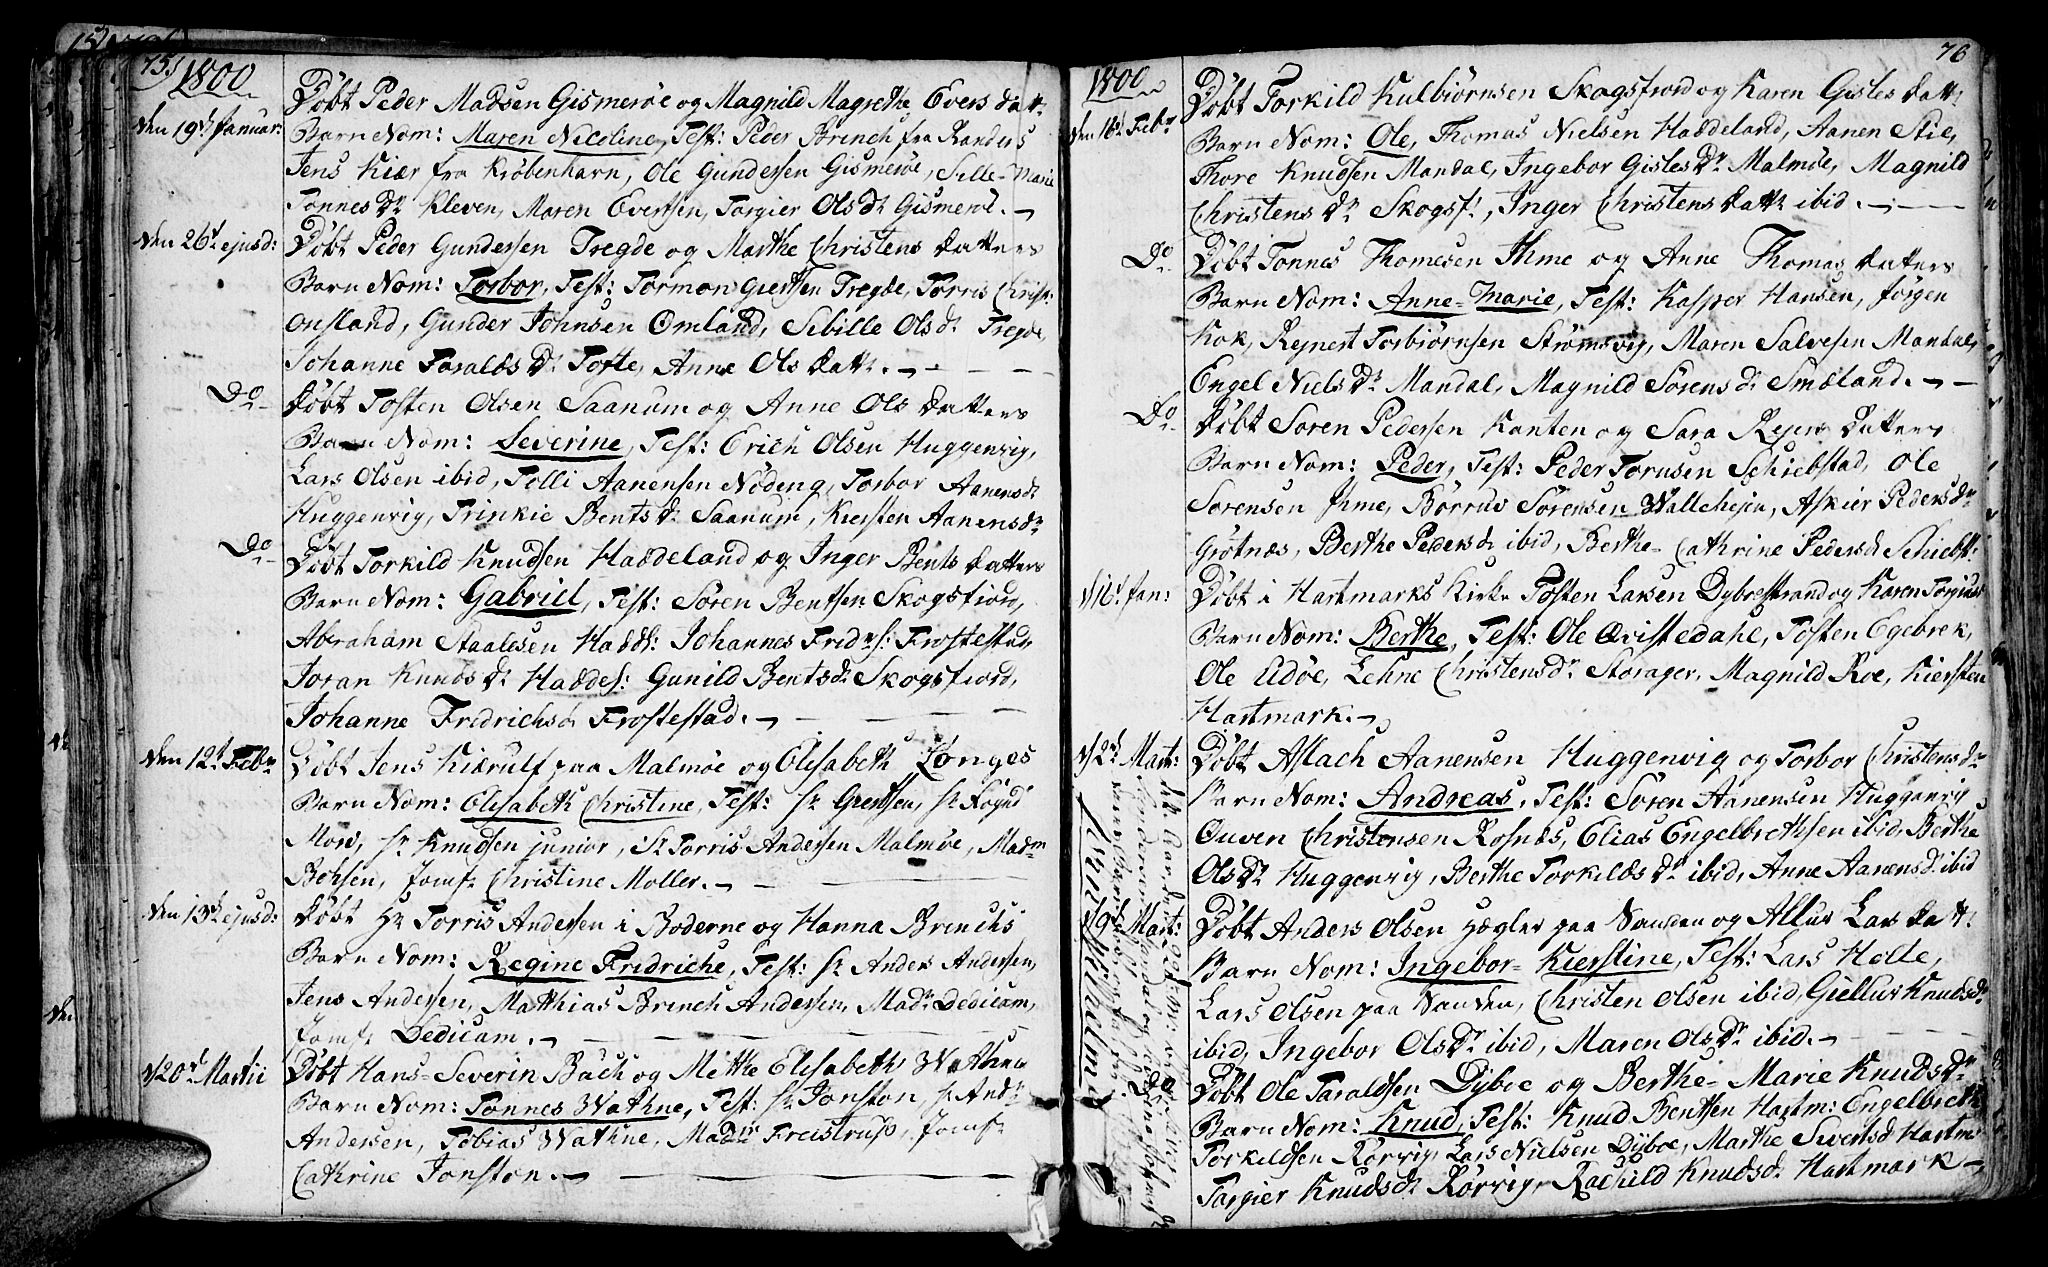 75.
1800
Den 19d Januar:
Døbt Peder Madsen Gismerøe og Magnild Magrethe Evers datt:
Barn Nom: Maren Nicoline, Test: Peder Brinch fra Randers
Jens Kiær fra Kiøbenhavn, Ole Gundersen Gismerøe, Sille-Marie
Tønnes Dr Kleven, Maren Eversen, Torgier Ols dr Gismerøe.
Den 26d ejusd:
Døbt Peder Gundersen Tregde og Marthe Christens datters
Barn Nom: Torbor, Test: Tormon Giertsen Tregde, Torris Christ:
Onsland, Gunder Johnsen Omland, Sibille Olsdr Tregde
Johanne Taralds Dr Tofte, Anne Ols datt.
Do
Døbt Tosten Olsen Saanum og Anne Ols datters
Barn Nom: Severine, Test: Erich Olsen Huggenvig,
Lars Olsen ibid, Tolli Aanensen Nødeng, Torbor Aanensdr
Huggenvig, Trinkie Bentsdr Saanum, Kiersten Aanensdr
Do
Døbt Torkild Knudsen Haddeland og Inger Bents datters
Barn Nom: Gabriel, Test: Søren Bentsen Skogsfiord,
Abraham Staalesen Hadd: Johannes Fridr: Frostestad,
Joran Knuds Dr Haddel: Gunild Bentsdr Skogsfiord,
Johanne Fridrichsdr Frostestad.
Den 12d Febr
Døbt Jens Kierulf paa Malmøe og Elisabeth Longes
Barn Nom: Elisabeth Christine, Test: Sr Giertsen, Sr Fogud
Moss, Sr Knudsen junior, Sr Torris Andersen Malmøe, Madm
Behsen, Jomfr Christine Moller.
Den 13d ejusd:
Døbt Hr Torris Andersen i Boderne og Hanna Brinchs
Barn Nom: Regine Fridriche, Test: Sr Anders Andersen,
Jens Andersen, Matthias Brinch Andersen, Madm Dedicam,
Jomfr Dedicam.
d 20d Martii
Døbt Hans-Severin Bach og Mette Elisabeth Wathne
Barn Nom: Tønnes Wathne, Test: Sr Jonston, Sr Andr
Andersen, Tobias Wathne, Madm Freistrup, Jomfr
Cathrine Jonston.
76
1800
Den 16d Febr
Døbt Torkild Kulbiørnsen Skogsfiord og Karen Gisles datt:
Barn Nom: Ole, Thomas Nielsen Haddeland, Aanen Stie,
Thore Knudsen Mandal, Ingebor Gisles Dr Malmøe, Magnild
Christens Dr Skogsf:, Inger Christens datt: ibid.
Do
Døbt Tonnes Thomesen Ihme og Anne Thomas datters
Barn Nom: Anne-Marie, Test: Kasper Hansen, Jørgen
Kok, Rejnert Torbiørnsen Strømsvig, Maren Salvesen Mandal,
Engel Niels Dr Mandal, Magnild Sørens dr Smæland.
Do
Døbt Søren Pedersen Kanten og Sara Rejers datters
Barn Nom: Peder, Test: Peder Torusen Schiebstad, Ole
Sørensen Ihme, Børrus Sørensen Wallehejen, Askier Pedersdr
Grøtnæs, Berthe Pedersdr ibid, Berthe-Cathrine Pedersdr Schiebst:
d 10d Jan:
Døbt i Hartmarks Kirke Tosten Larsen Dybestrand og Karen Torgius
Barn Nom: Berthe, Test: Ole Qvistedahl, Tosten Egebrek,
Ole Udøe, Lehne Christensdr Storager, Magnild Roe, Kiersten
Hartmark.
d 2d Mart:
Døbt Aslach Aanensen Huggenvig og Torbor Christensdr
Barn Nom: Andreas, Test: Søren Aanensen Huggenvig
Ouven Christensen Rosnæs, Elias Engelbrethsen ibid, Berthe
Ols Dr Huggenvig, Berthe Torkilds Dr ibid, Anne Aanensdr ibid
d 9d Mart:
Døbt Anders Olsen Hægler paa Sanden og Allur Lars datt:
Barn Nom: Ingebor-Kierstine, Test: Lars Holte,
Lars Olsen paa Sanden, Christen Olsen ibid, Giellur Knudsdr
ibid, Ingebor Olsdr ibid, Maren Olsdr ibid.
Do
Døbt Ole Taraldsen Dyboe og Berthe-Marie Knudsdr
Barn Nom: Knud, Test: Knud Bentsen Hartm: Engelbreth
Torkildsen Rørvig, Lars Nielsen Dyboe, Marthe Sivertsdr Hartm:
Torgier Knudsdr Rørvig, Rachild Knudsdr Hartmark